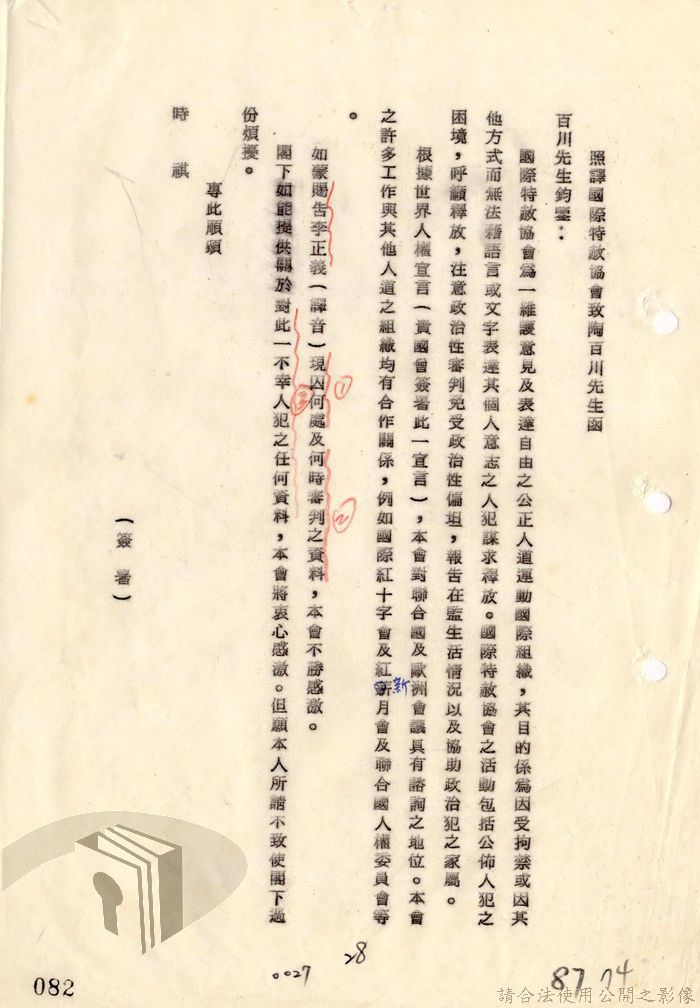 照譯國際特赦協會致陶百川先生函
百川先生鈞鑒：
國際特赦協會為一維護意見及表達自由之公正人道運動國際組織，其目的係為因受拘禁或因其
他方式而無法藉語言或文字表達其個人意志之人犯謀求釋放。國際特赦協會之活動包括公佈人犯之
困境，呼籲釋放，注意政治性審判免受政治性偏坦，報告在監生活情況以及協助政治犯之家屬。
根據世界人權宣言（貴國會簽署此一宣言），本會對聯合國及歐洲會議具有諮詢之地位。本會
之許多工作與其他人道之組織均有合作關係，例如國際紅十字會及紅新月會及聯合國人權委員會等
。
如蒙賜告李正義（譯音）現因何處及何時審判之資料，本會不勝感激。
①
②
閣下如能提供關於對此一不幸人犯之任何資料，本會將衷心感激。但願本人所請不致使閣下過
③
份煩擾。
專此順頌
時祺
（簽署）
28
0027
87 74
082
請合法使用公開之影像